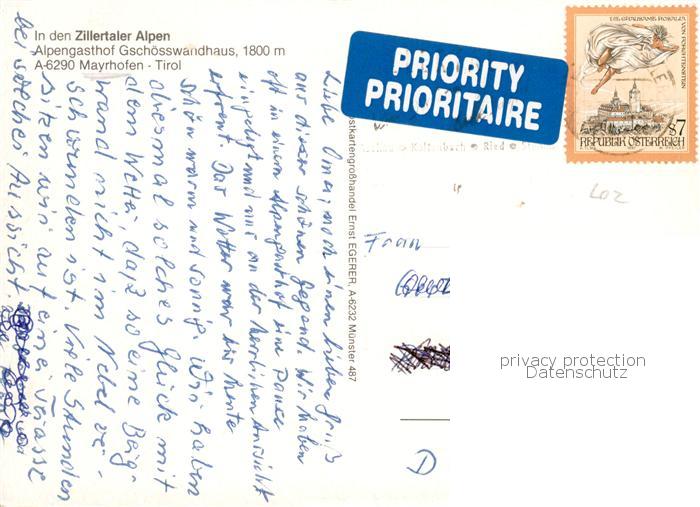 In den Zillertaler Alpen
Alpengasthof Gschösswandhaus, 1800 m
A-6290 Mayrhofen - Tirol
PRIORITY
PRIORITAIRE
DIE GRAUSAME ROSALIA VON FORCHTENSTEIN
S 7
REPUBLIK ÖSTERREICH
Kaltenbach Ried
Postkartengroßhandel Ernst EGERER, A-6232 Münster 487
Liebe Oma, noch einen lieben Gruß
aus dieser schönen Gegend. Wir haben
oft in einem Alpengasthof eine Pause
eingelegt und uns an der herrlichen Aussicht
erfreut. Das Wetter war bis heute
schön warm und sonnig. Wir haben
diesmal solches Glück mit
dem Wetter, daß so eine Berg-
wand nicht im Nebel ver-
schwunden ist. Viele Stunden
sitzen wir auf einer Terasse
bei solcher Aussicht.
Frau
D
LOZ
privacy protection
Datenschutz